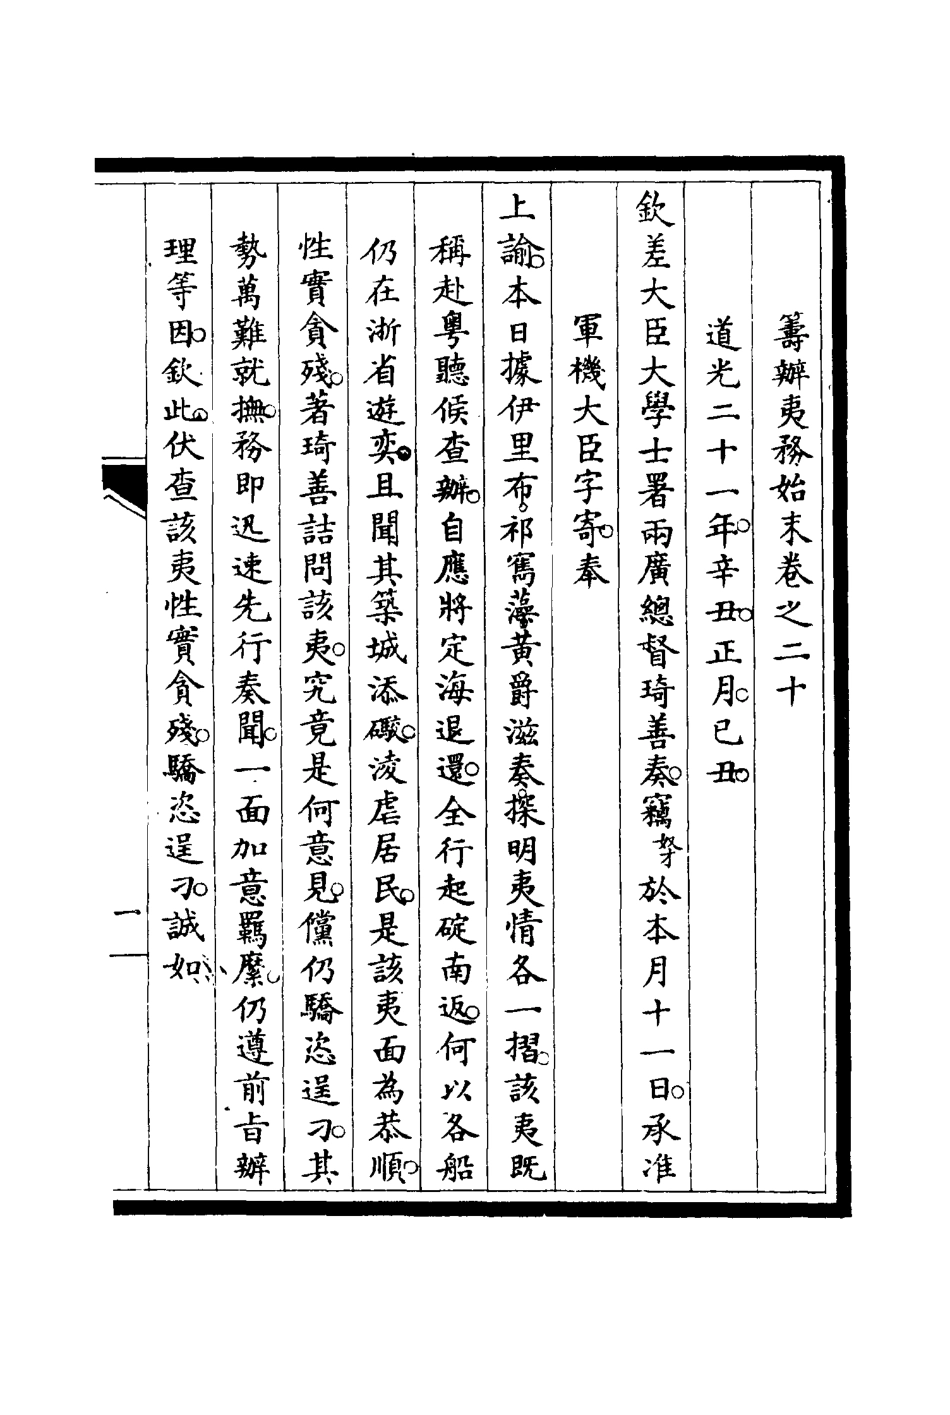 籌辦夷務始末卷之二十
道光二十一年。辛丑。正月。己丑。
欽差大臣大學士署兩廣總督琦善奏。竊奴才於本月十一日。承准
軍機大臣字寄。奉
上諭。本日據伊里布。祁寯藻。黃爵滋奏。探明夷情各一摺。該夷既
稱赴粵聽候查辦。自應將定海退還。全行起碇南返。何以各船
仍在浙省遊奕。且聞其築城添礮。淩虐居民。是該夷面為恭順。
性實貪殘。著琦善詰問該夷。究竟是何意見。儻仍驕恣逞刁。其
勢萬難就撫。務即迅速先行奏聞。一面加意羈縻。仍遵前旨辦
理等因。欽此。伏查該夷性實貪殘。驕恣逞刁。誠如
一